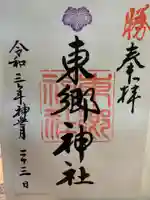 勝
奉拝
東郷神社
令和三年神無月二十三日